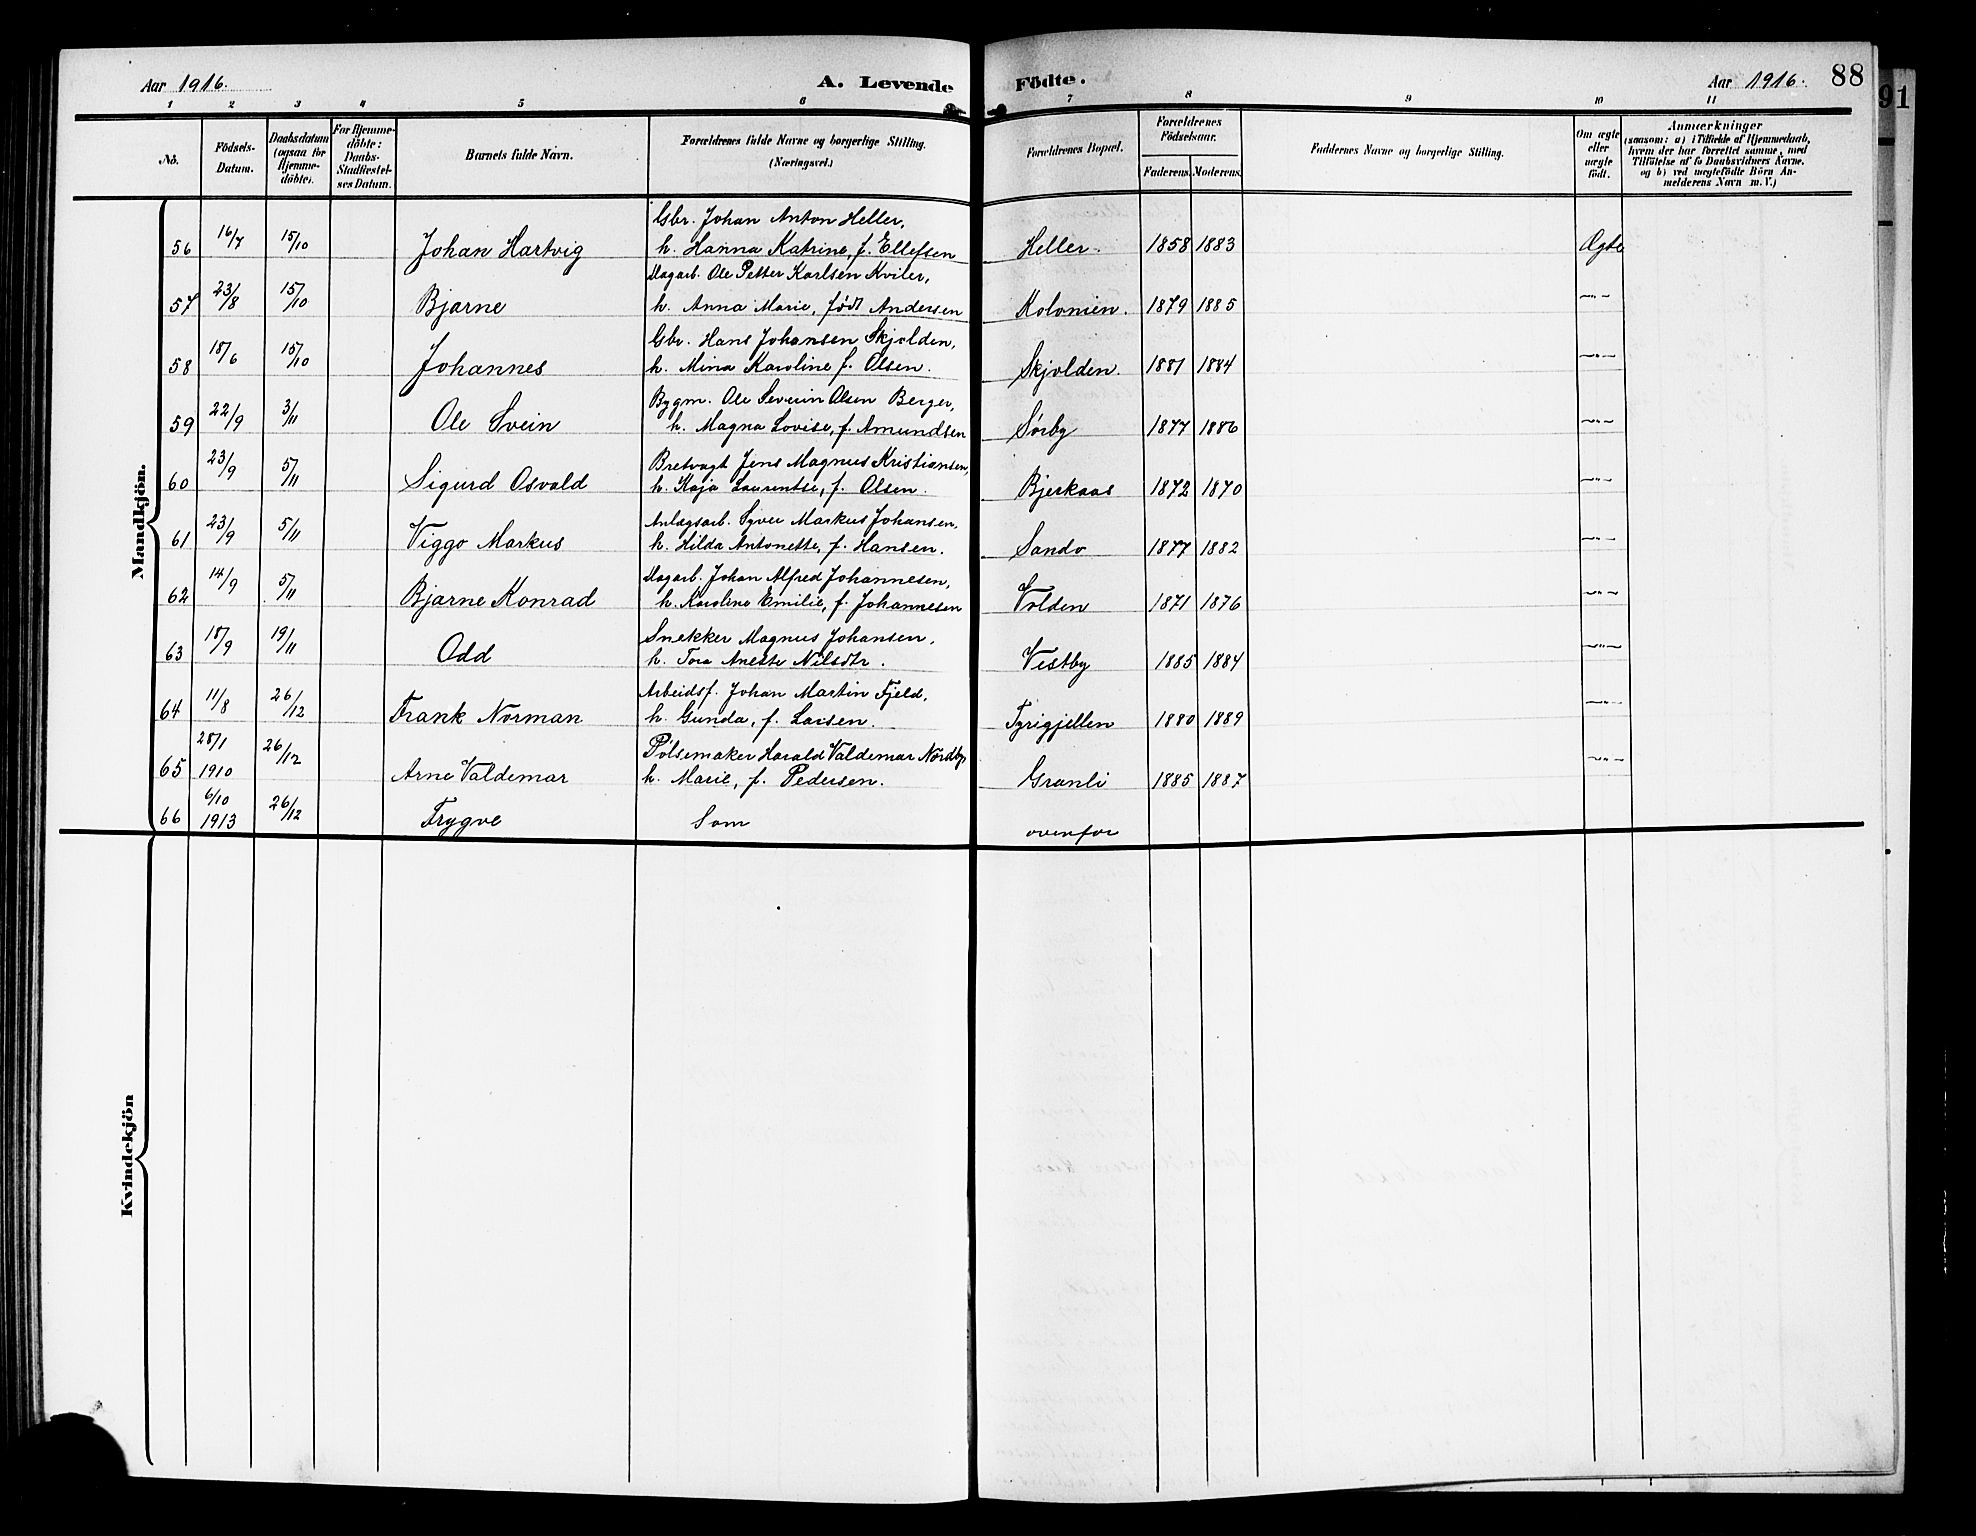 Aar 1916. A. Levende Födte. Aar 1916. 88
91
1 2 3 4 5 6 7 8 9 10 11
No.
Födsels-Datum.
Daabsdatum (ogsaa for Hjemme-döbte).
For Hjemme-döbte: Daabs-Stadfæstel-ses Datum.
Barnets fulde Navn.
Forældrenes fulde Navne og borgerlige Stilling. (Næringsvei.)
Forældrenes Bopæl.
Forældrenes Födselsaar.
Faderens. Moderens.
Faddernes Navne og borgerlige Stilling.
Om ægte eller uægte födt.
Anmærkninger
(saasom: a) i Tilfælde af Hjemmedaab,
hvem der har forrettet samme, med
Tilföielse af to Daabsvidners Navne.
og b) ved uægtefödte Börn An-
melderens Navn m. V.)
Mandkjön.
Gbr. Johan Anton Heller,
56 16/7 15/10 Johan Hartvig h. Hanna Katrine, f. Ellefsen Heller. 1858 1883 Ægte
Dagarb. Ole Petter Karlsen Kviler,
57 23/8 15/10 Bjarne h. Anna Marie, født Andersen Kolonien. 1879 1885 -"-
Gbr. Hans Johansen Skjolden,
58 18/6 15/10 Johannes h. Mina Karoline f. Olsen. Skjolden. 1881 1884 -"-
Bygm. Ole Severin Olsen Berger,
59 22/9 3/11 Ole Svein h. Magna Lovise, f. Amundsen Sørby 1877 1886 -"-
Bretvagt Jens Magnus Kristiansen,
60 23/9 5/11 Sigurd Osvald h. Kaja Laurentse, f. Olsen. Bjerkaas 1872 1870 -"-
Anlægsarb. Syver Markus Johansen,
61 23/9 5/11 Viggo Markus h. Hilda Antonette, f. Hansen. Sando 1877 1882 -"-
Dagarb. Johan Alfred Johannesen,
62 14/9 5/11 Bjarne Konrad h. Karoline Emilie, f. Johannesen Volden 1871 1876 -"-
Snekker Magnus Johansen,
63 18/9 19/11 Odd h. Tora Anette Nilsdtr. Vestby 1885 1884 -"-
Arbeidsf. Johan Martin Fjeld,
64 11/8 26/12 Frank Norman h. Gunda, f. Larsen. Tyrigjellen 1880 1889 -"-
28/1 Pølsemaker Harald Valdemar Nordby
65 1910 26/12 Arne Valdemar h. Marie, f. Pedersen. Granli 1885 1887 -"-
6/10
66 1913 26/12 Trygve Som ovenfor
Kvindekjön